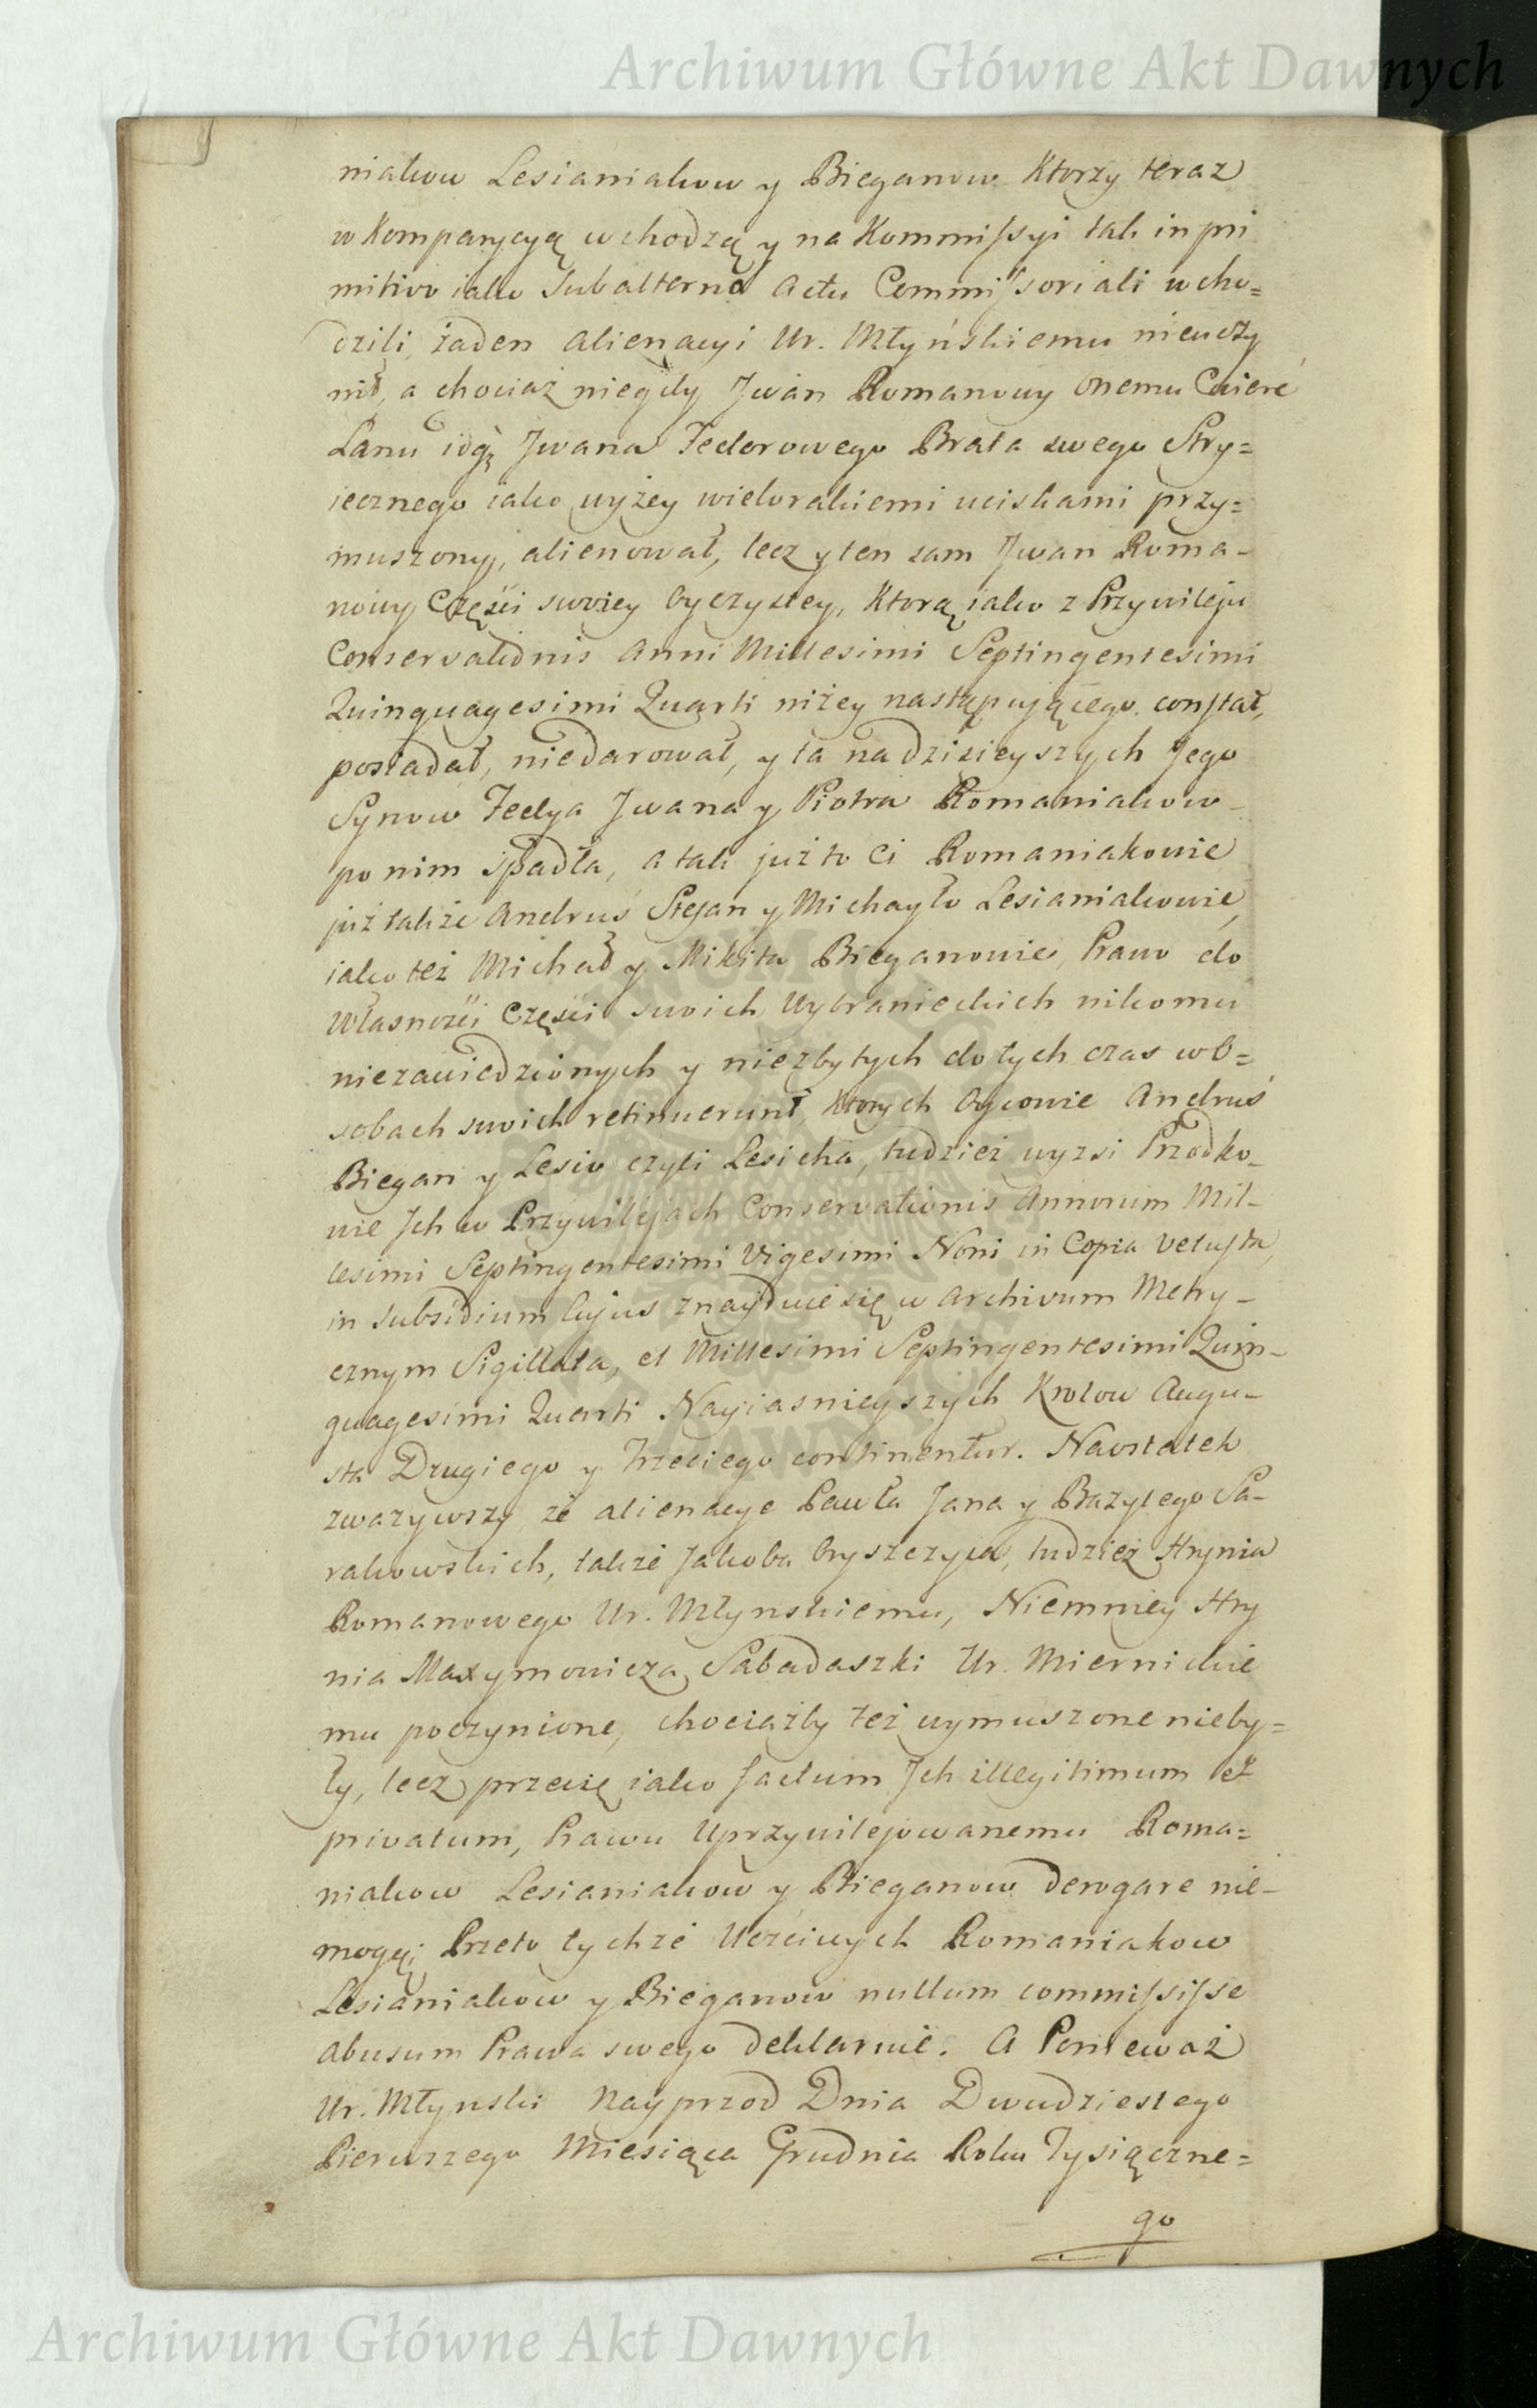 Archiwum Główne Akt Dawnych
niakow Lesianiakow y Bieganow Ktorzy teraz
w Komparycyą wchodzą y na Kommissyi tak in pri
mitivo iako Subalterno Actu Commissoriali wcho=
dzili, żaden alienacyi Ur. Młyńskiemu nieuczy
nił, a chociaż niegdy Jwan Romanowy onemu Cwierć
Lanu idq; Jwana Fedorowego Brata swego Stry=
iecznego iako wyżey wielorakiemi uciskami przy=
muszony, alienował, lecz y ten sam Jwan Roma-
nowy Części swoiey Oyczystey, Ktorą iako z Przywileju
Conservationis Anni Millesimi Septingentesimi
Quinquagesimi Quarti niżey następującego constat,
posiadał, niedarował, y ta na dzisieyszych Jego
Synow Fedya Jwana y Piotra Romaniakow
po nim spadła, a tak już to Ci Romaniakowie
już także Andruś Stefan y Michayło Lesianiakowie,
iako też Michał y Mikita Bieganowie, Prawo do
Własności Części swoich Wybranieckich nikomu
niezawiedzionych y niezbytych do tych czas w O=
sobach swoich retinuerunt, Ktorych Oycowie Andruś
Biegan y Lesio czyli Lesicha, tudzież wyżsi Przodko-
wie Jch w Przywilejach Conservationis Annorum Mil-
lesimi Septingentesimi Vigesimi Noni in Copia vetusta
in subsidium cujus znayduie się w Archivum Metry-
cznym Sigillata, et Millesimi Septingentesimi Quin-
quagesimi Quarti Nayiasnieyszych Krolow Augu-
sta Drugiego y Trzeciego continentur. Naostatek
zwazywszy że alienacye Pawła Jana y Bazylego Sa-
rakowskich, także Jakoba Oryszczyca, tudzież Hrynia
Romanowego Ur. Młynskiemu, Niemniey Hry
nia Maxymowicza Sabadaszki Ur. Miernickie
mu poczynione, chociażby też wymuszone nieby=
ły, lecz przecię iako factum Jch illegitimum et
privatum, Prawu Uprzywilejowanemu Roma=
niakow Lesianiakow y Bieganow derogare nie-
mogą; Przeto tychże Uczciwych Romaniakow
Lesianiakow y Bieganow nullum commississe
abusum Prawa swego deklaruie. A Ponieważ
Ur. Młynski Nayprzod Dnia Dwudziestego
Pierwszego Miesiąca Grudnia Roku Tysiączne=
go
Archiwum Główne Akt Dawnych